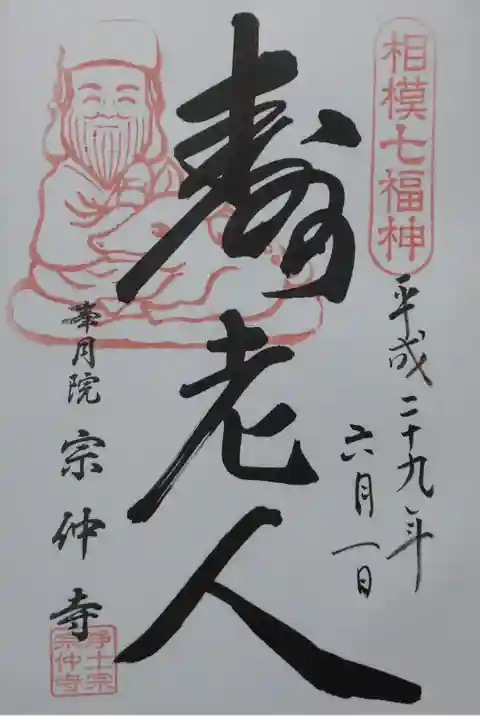 相模七福神
平成二十九年
六月一日
寿老人
峯月院
宗仲寺
浄土宗
宗仲寺